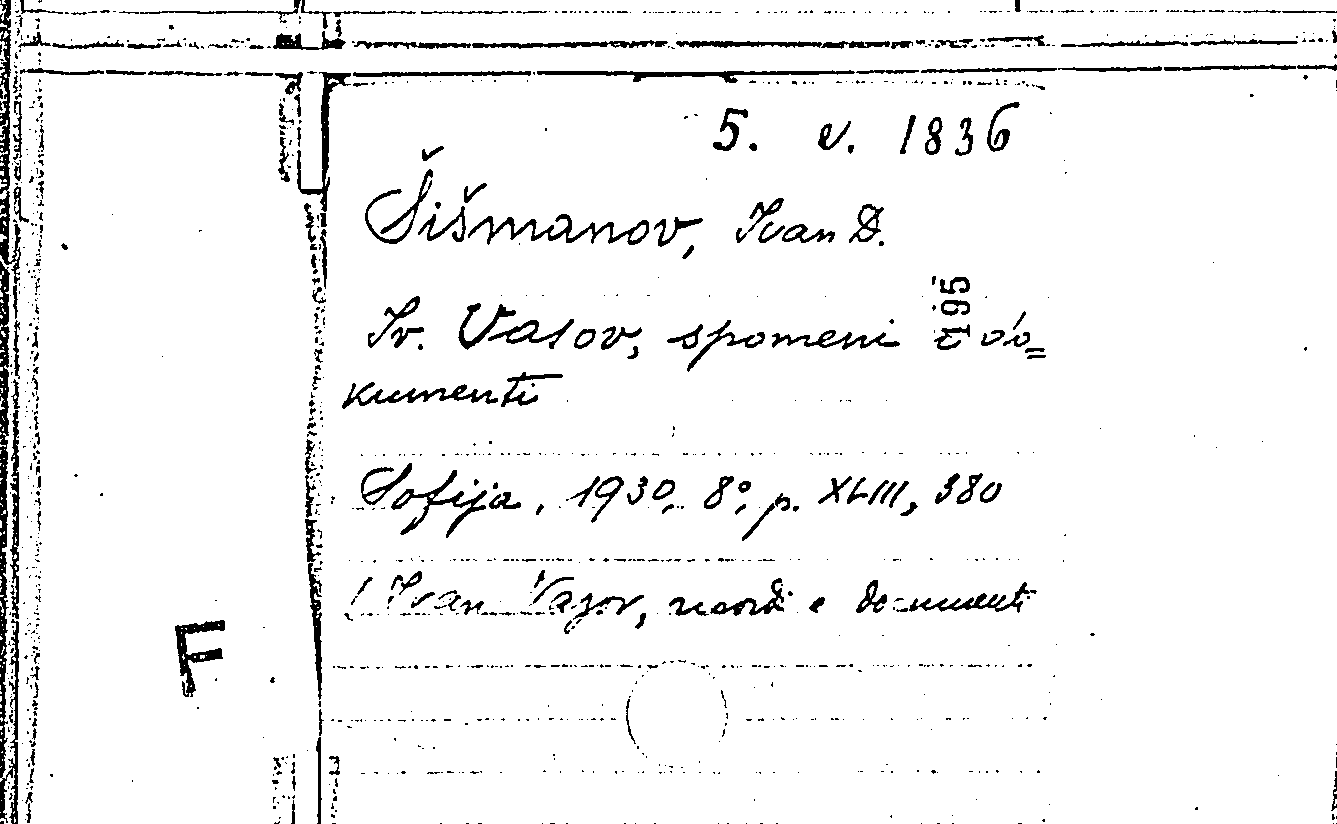 5. v. 1836
Šišmanov, Ivan D.
Iv. Vasov, spomeni i do=
kumenti
Sofija, 1930, 8°, p. XLIII, 380
(Ivan Vazov, ricordi e documenti
F